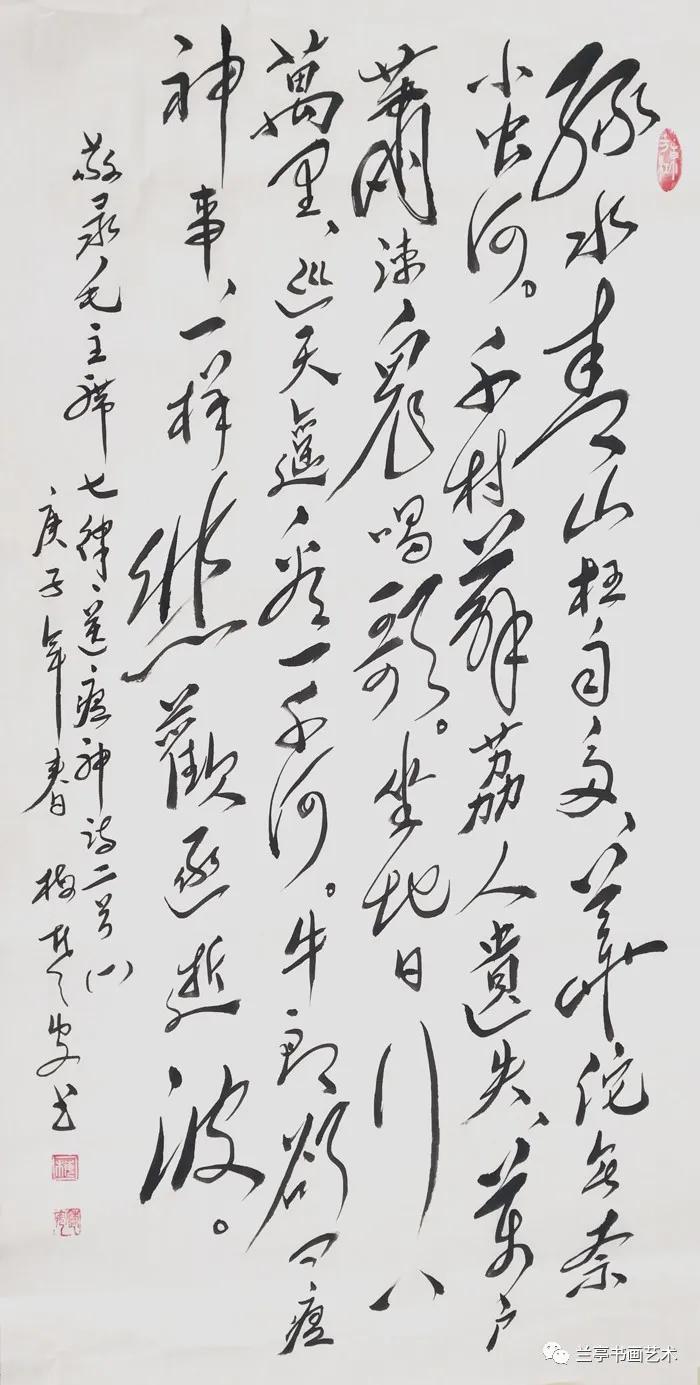 綠水青山枉自多、華佗无奈
小虫何。千村薜荔人遺失、萬户
蕭疎鬼唱歌。坐地日行八
萬里、巡天遥看一千河。牛郎欲问瘟
神事、一样悲歡逐逝波。
敬录毛主席七律、送瘟神诗二首
庚子年春 梅 书
兰亭书画艺术